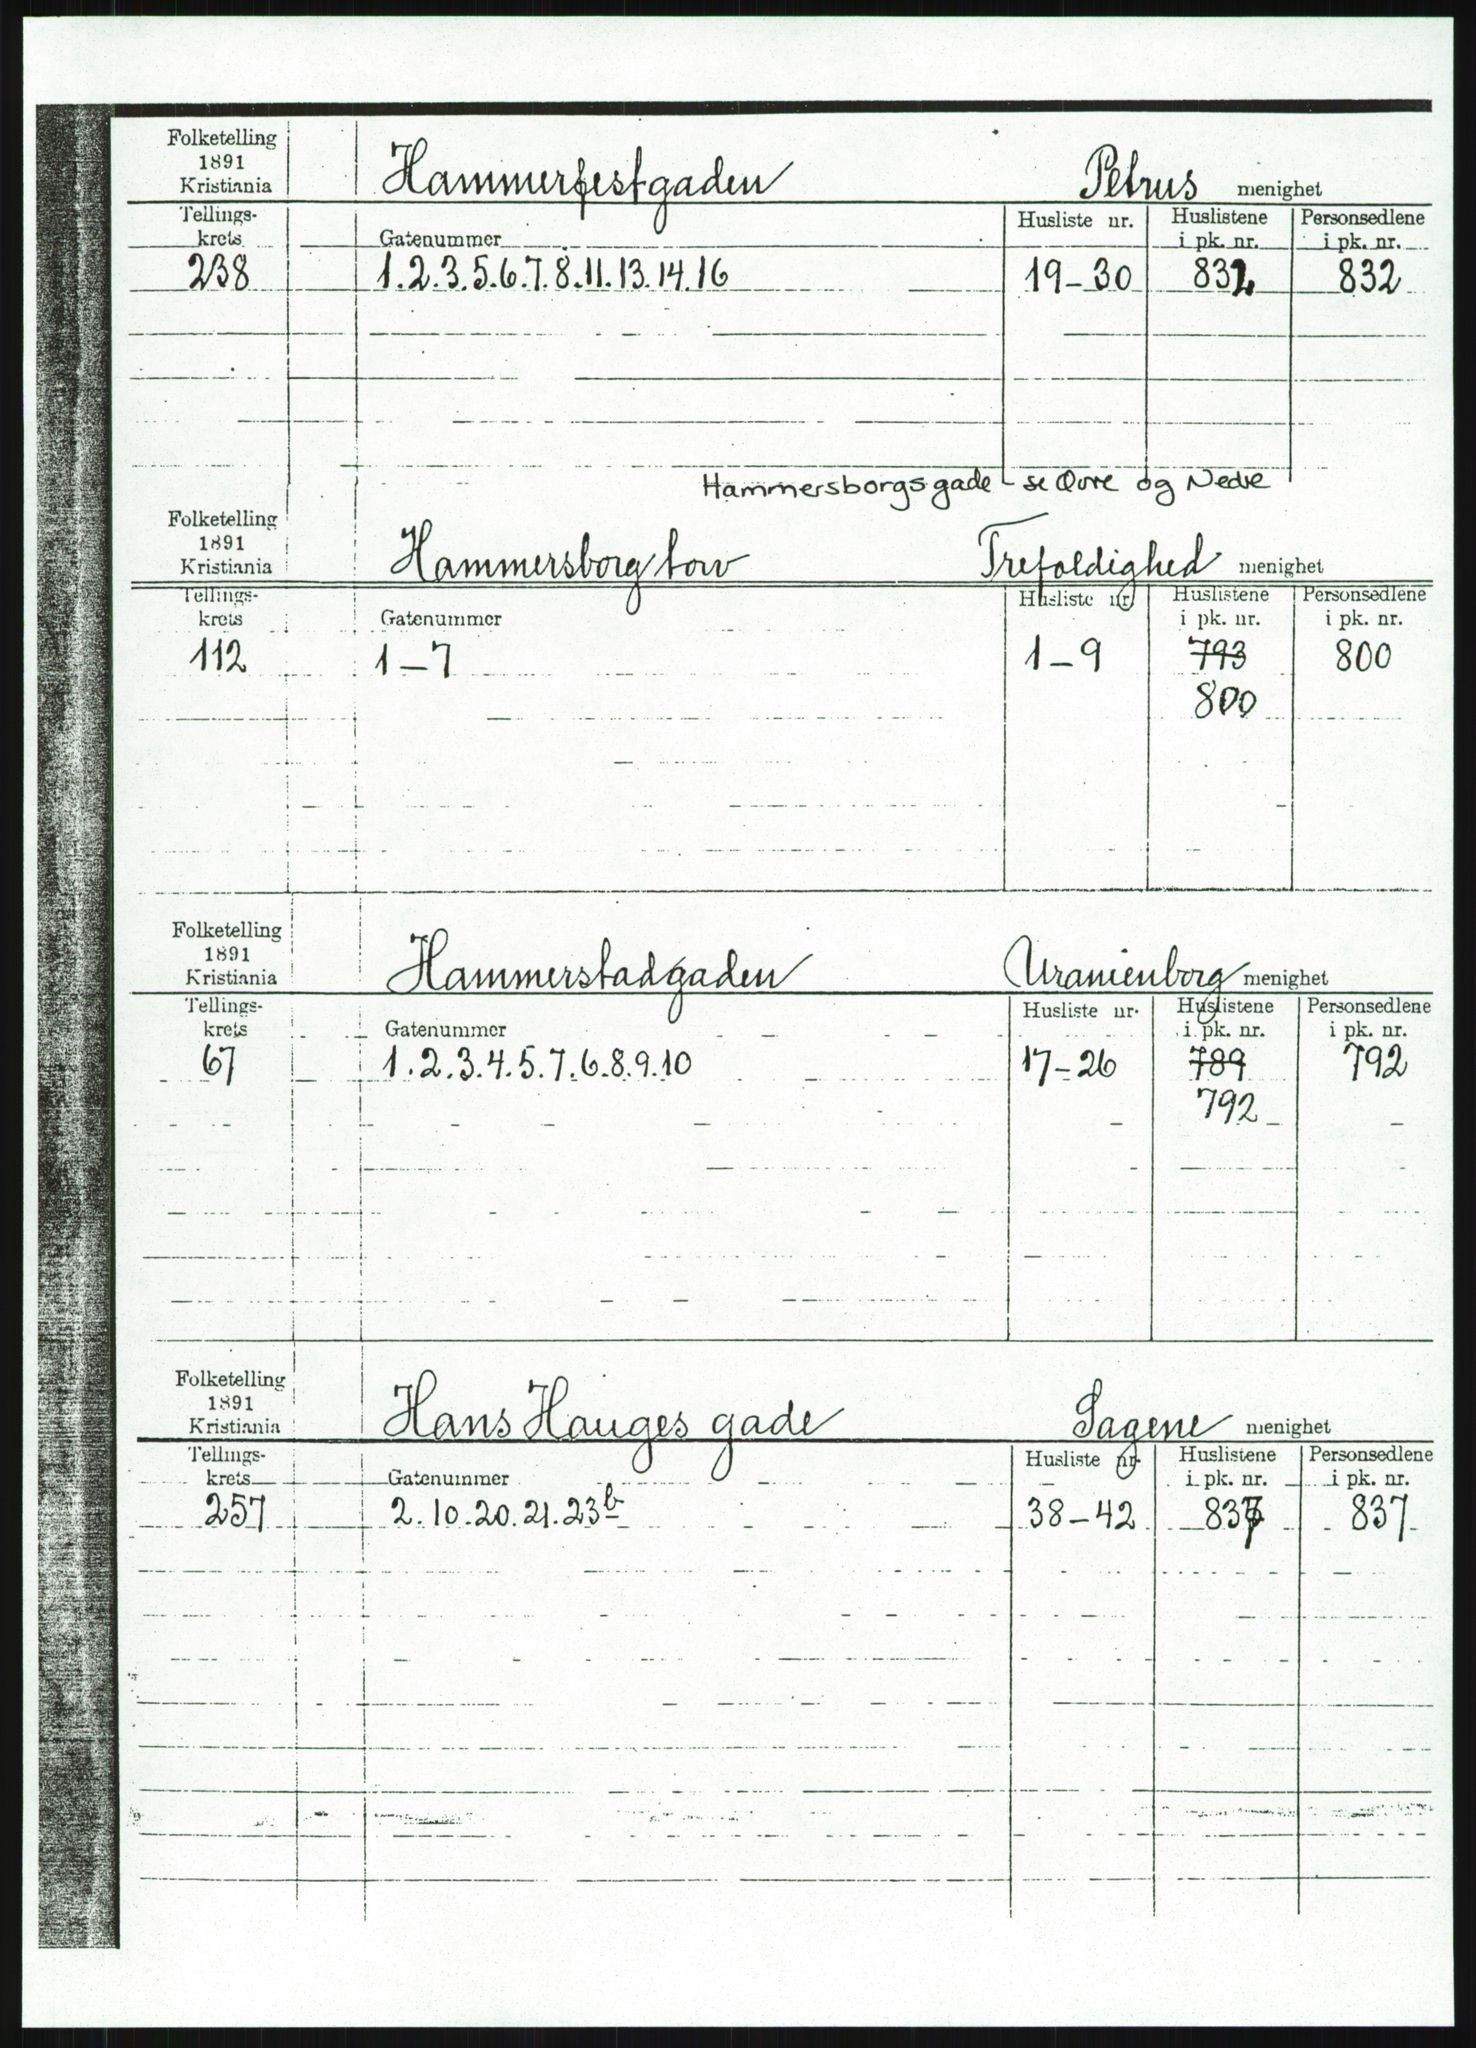 Folketelling
1891
Kristiania Hammerfestgaden Petrus menighet
Tellings- Husliste nr. Huslistene Personsedlene
krets Gatenummer i pk. nr. i pk. nr.
238 1.2.3.5.6.7.8.11.13.14.16 19-30 832 832
Hammersborgsgade - se Øvre og Nedre
Folketelling
1891
Kristiania Hammersborg torv Trefoldighed menighet
Tellings- Husliste nr. Huslistene Personsedlene
krets Gatenummer i pk. nr. i pk. nr.
112 1-7 1-9 793 800
800
Folketelling
1891
Kristiania Hammerstadgaden Uranienborg menighet
Tellings- Husliste nr. Huslistene Personsedlene
krets Gatenummer i pk. nr. i pk. nr.
67 1.2.3.4.5.7.6.8.9.10 17-26 789 792
792
Folketelling
1891
Kristiania Hans Hauges gade Sagene menighet
Tellings- Husliste nr. Huslistene Personsedlene
krets Gatenummer i pk. nr. i pk. nr.
257 2.10.20.21.23b 38-42 837 837